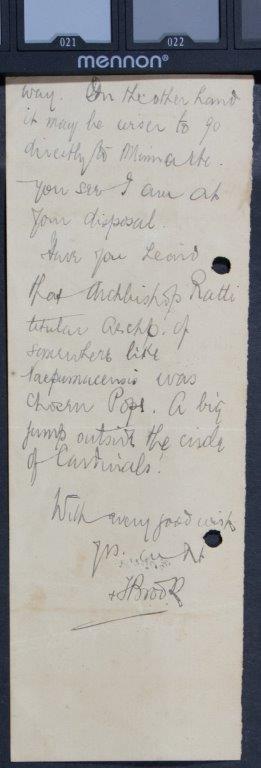 021 022
mennon®
way. On the other hand
it may be wiser to go
directly to
You see I am at
your disposal.
Have you heard
that Archbishop Ratti
titular Archbp. of
somewhere like
was
chosen Pope. A big
jump outside the circle
of Cardinals!
With every good wish
yrs.